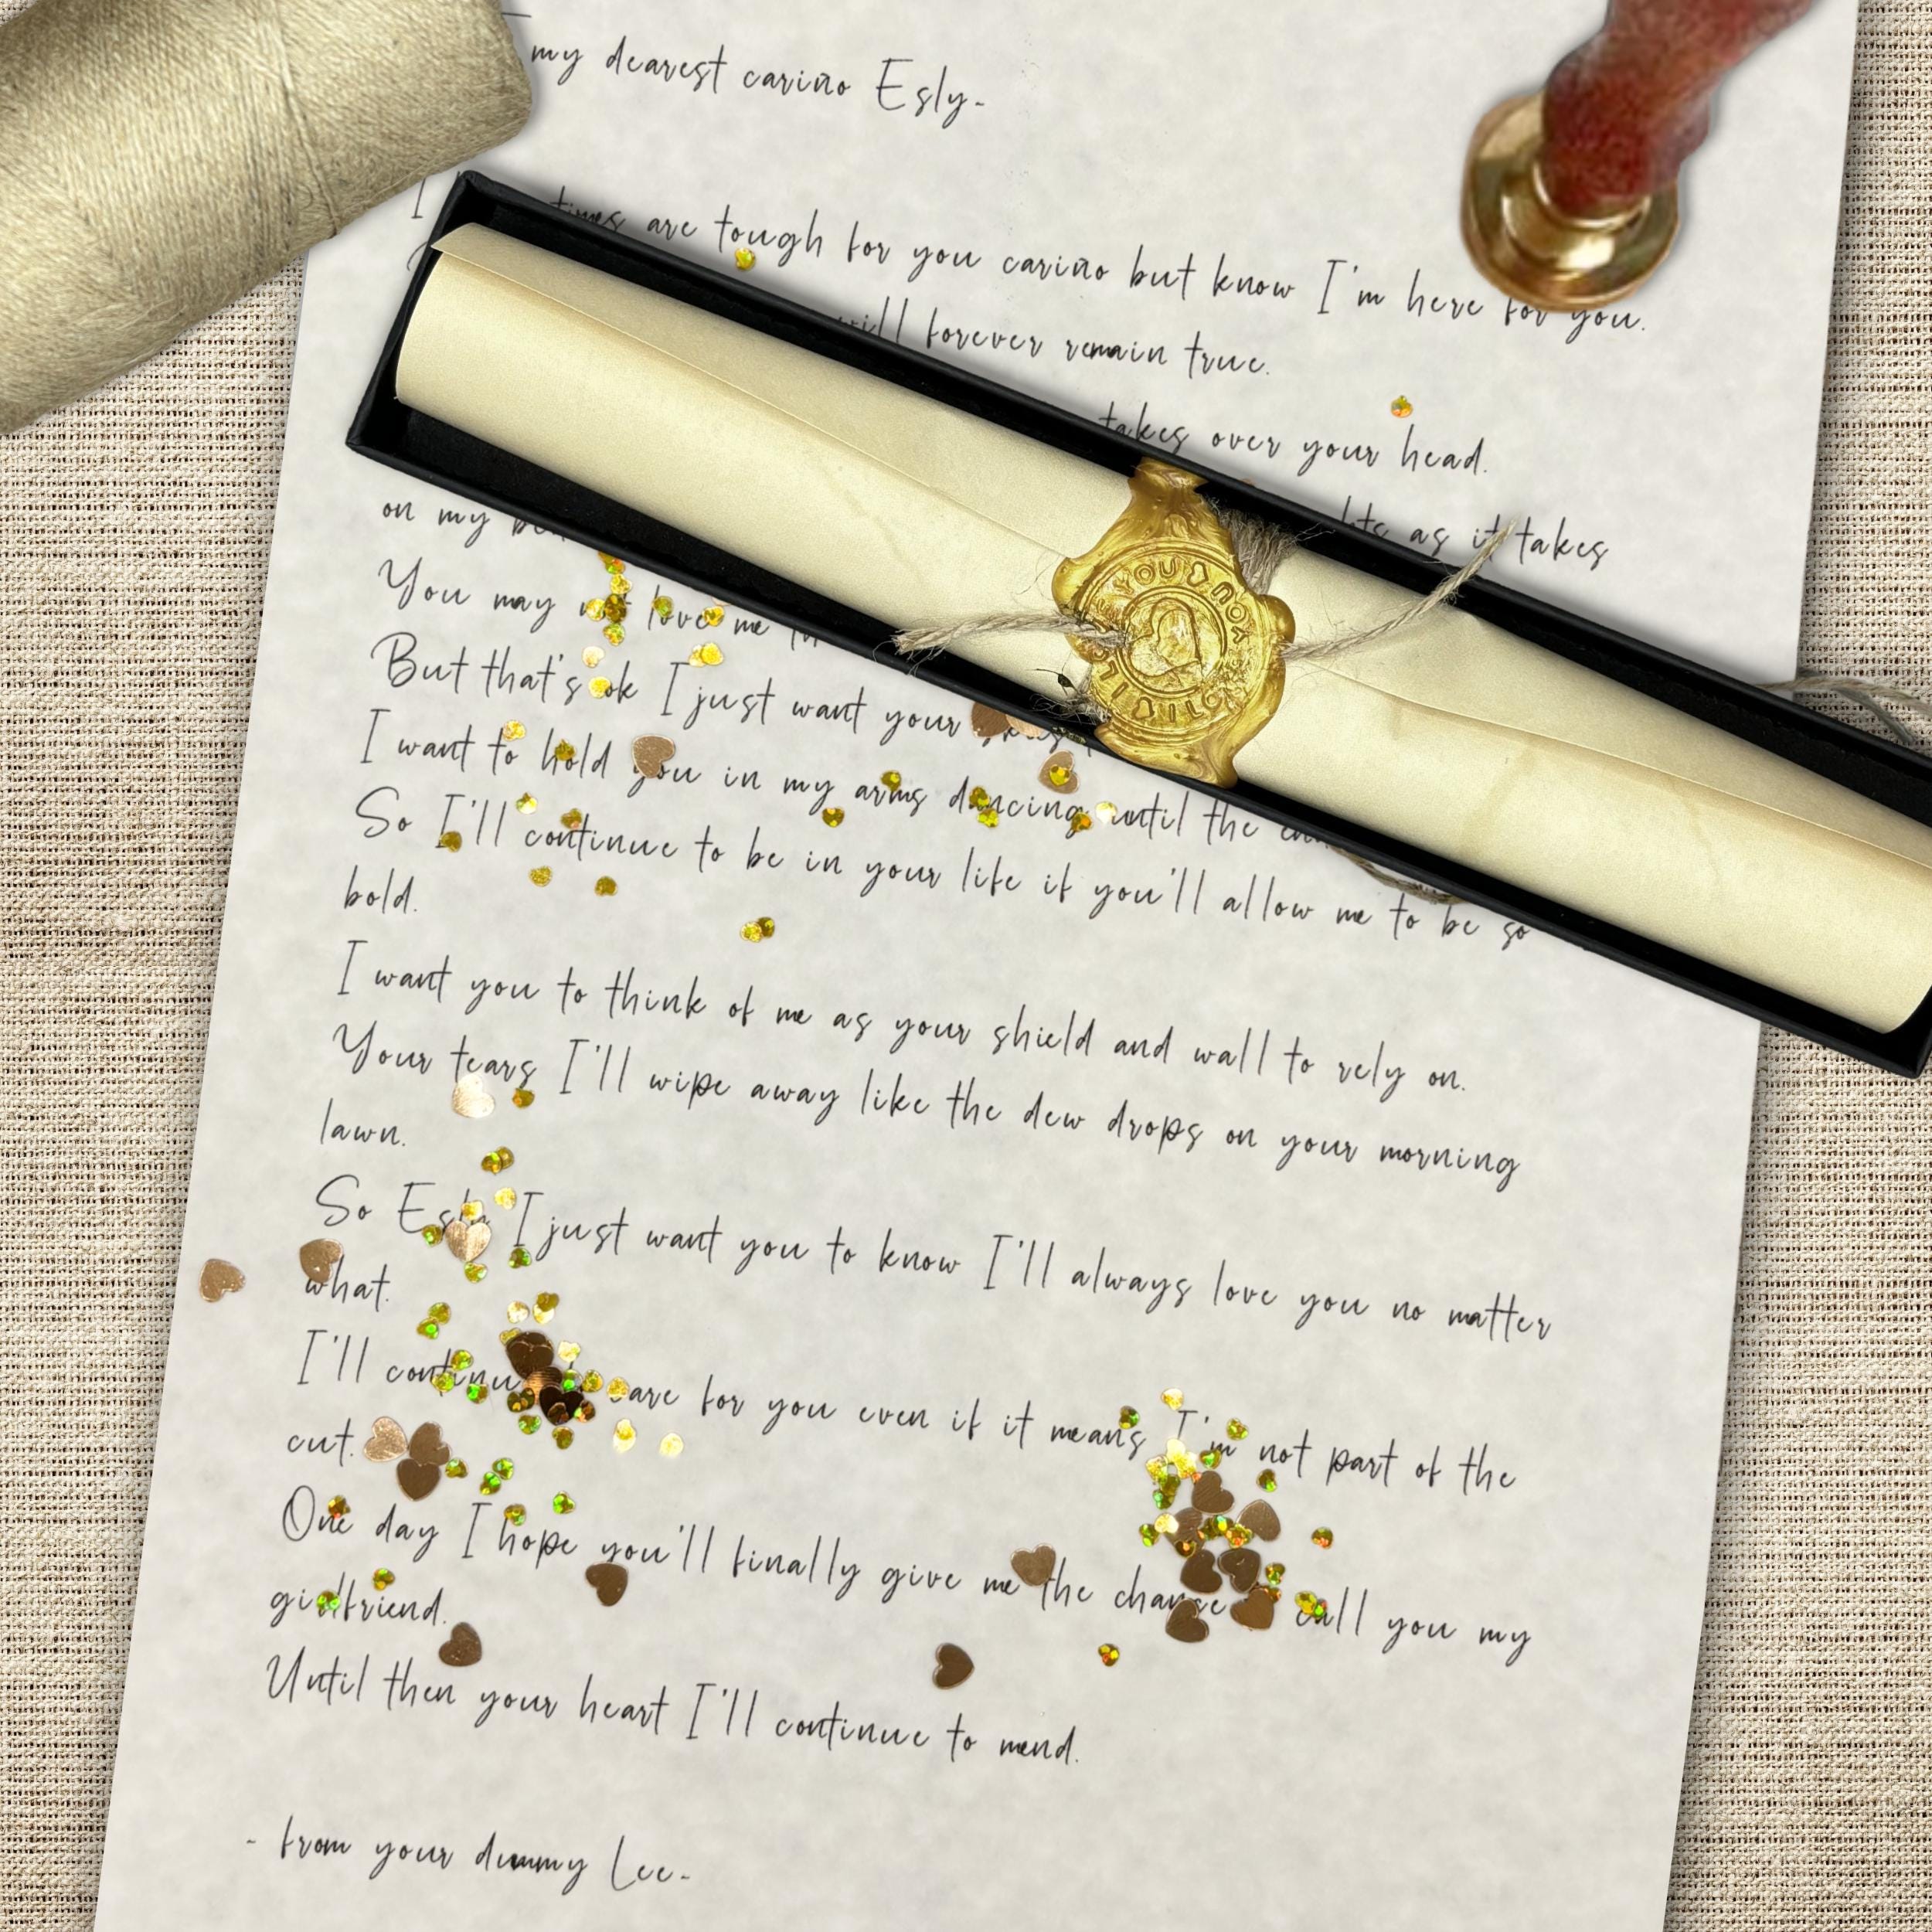 my dearest cariño Esly-
I times are tough for you cariño but know I'm here for you.
will forever remain true.
takes over your head.
as it takes
on my
You may not love me
But that's ok I just want your
I want to hold you in my arms dancing until the
So I'll continue to be in your life if you'll allow me to be so
bold.
I want you to think of me as your shield and wall to rely on.
Your tears I'll wipe away like the dew drops on your morning
lawn.
So Esly I just want you to know I'll always love you no matter
what.
I'll continue care for you even if it means I'm not part of the
cut.
One day I hope you'll finally give me the chance call you my
girlfriend.
Until then your heart I'll continue to mend.
- from your dummy Lee-